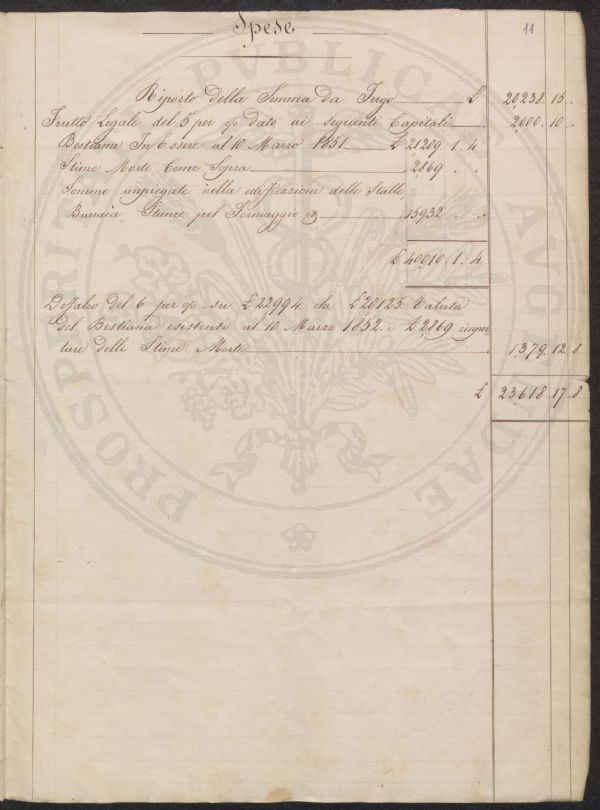 Spese
11
Riporto della Somma da Tergo £ 20,238. 15.
Frutto Legale del 5 per % dato ai seguenti Capitali 2000. 10.
Bestiame In Essere al 10 Marzo 1851 £ 21209. 1. 4
Stime Morte Come Sopra 2869
Somme impiegate nella edificazione delle Stalle,
Burreia, Stanze pel Formaggio 15932
£ 40,010. 1. 4
Defalco del 6 per % su £ 22994. cha £ 20125. Valuta
del Bestiame esistente al 10 Marzo 1852. e £ 2,869 impor
tare delle Stime Morte 1,379. 12. 8
£ 23,618. 17. 8
PVBLICAE
PROSPERITATI
AVGENDAE